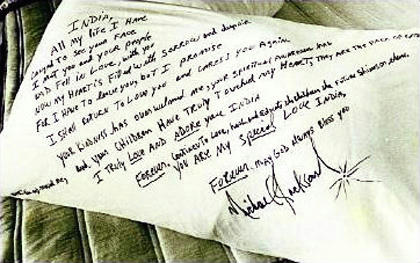 INDIA,
All my life I Have
Longed to see your FACE
I Met you and your people
and Fell in Love with you
Now my Heart is Filled with Sorrow and despair
For I Have to Leave, but I promise
I shall return To Love you and caress you Again.
Your Kindness Has overwhelmed me, your spiritual awareness Has
and your Children Have Truly Touched my Heart, They are the Face of
I Truly Love and ADORE you INDIA
FOREVER, Continue To Love, heal and educate the children, the Future Shines on them.
YOU ARE MY SPECIAL LOVE INDIA,
FOREVER, MAY GOD Always Bless you
Michael Jackson